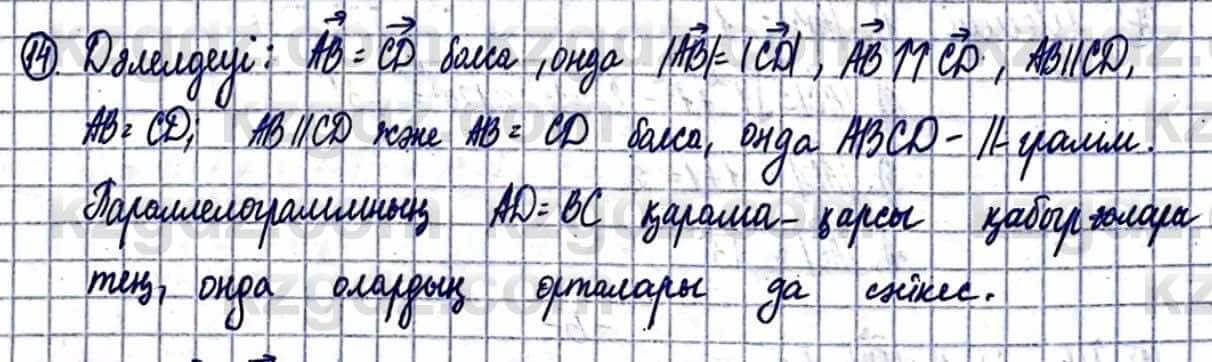 14. Дәлелдеуі: AB⃗ = CD⃗ болса, онда |AB⃗| = |CD⃗|, AB⃗ ⇈ CD⃗, AB||CD,
AB = CD; AB||CD және AB = CD болса, онда ABCD - ||-грамм.
Параллелограммның AD = BC қарама-қарсы қабырғалары
тең, онда олардың орталары да сәйкес.